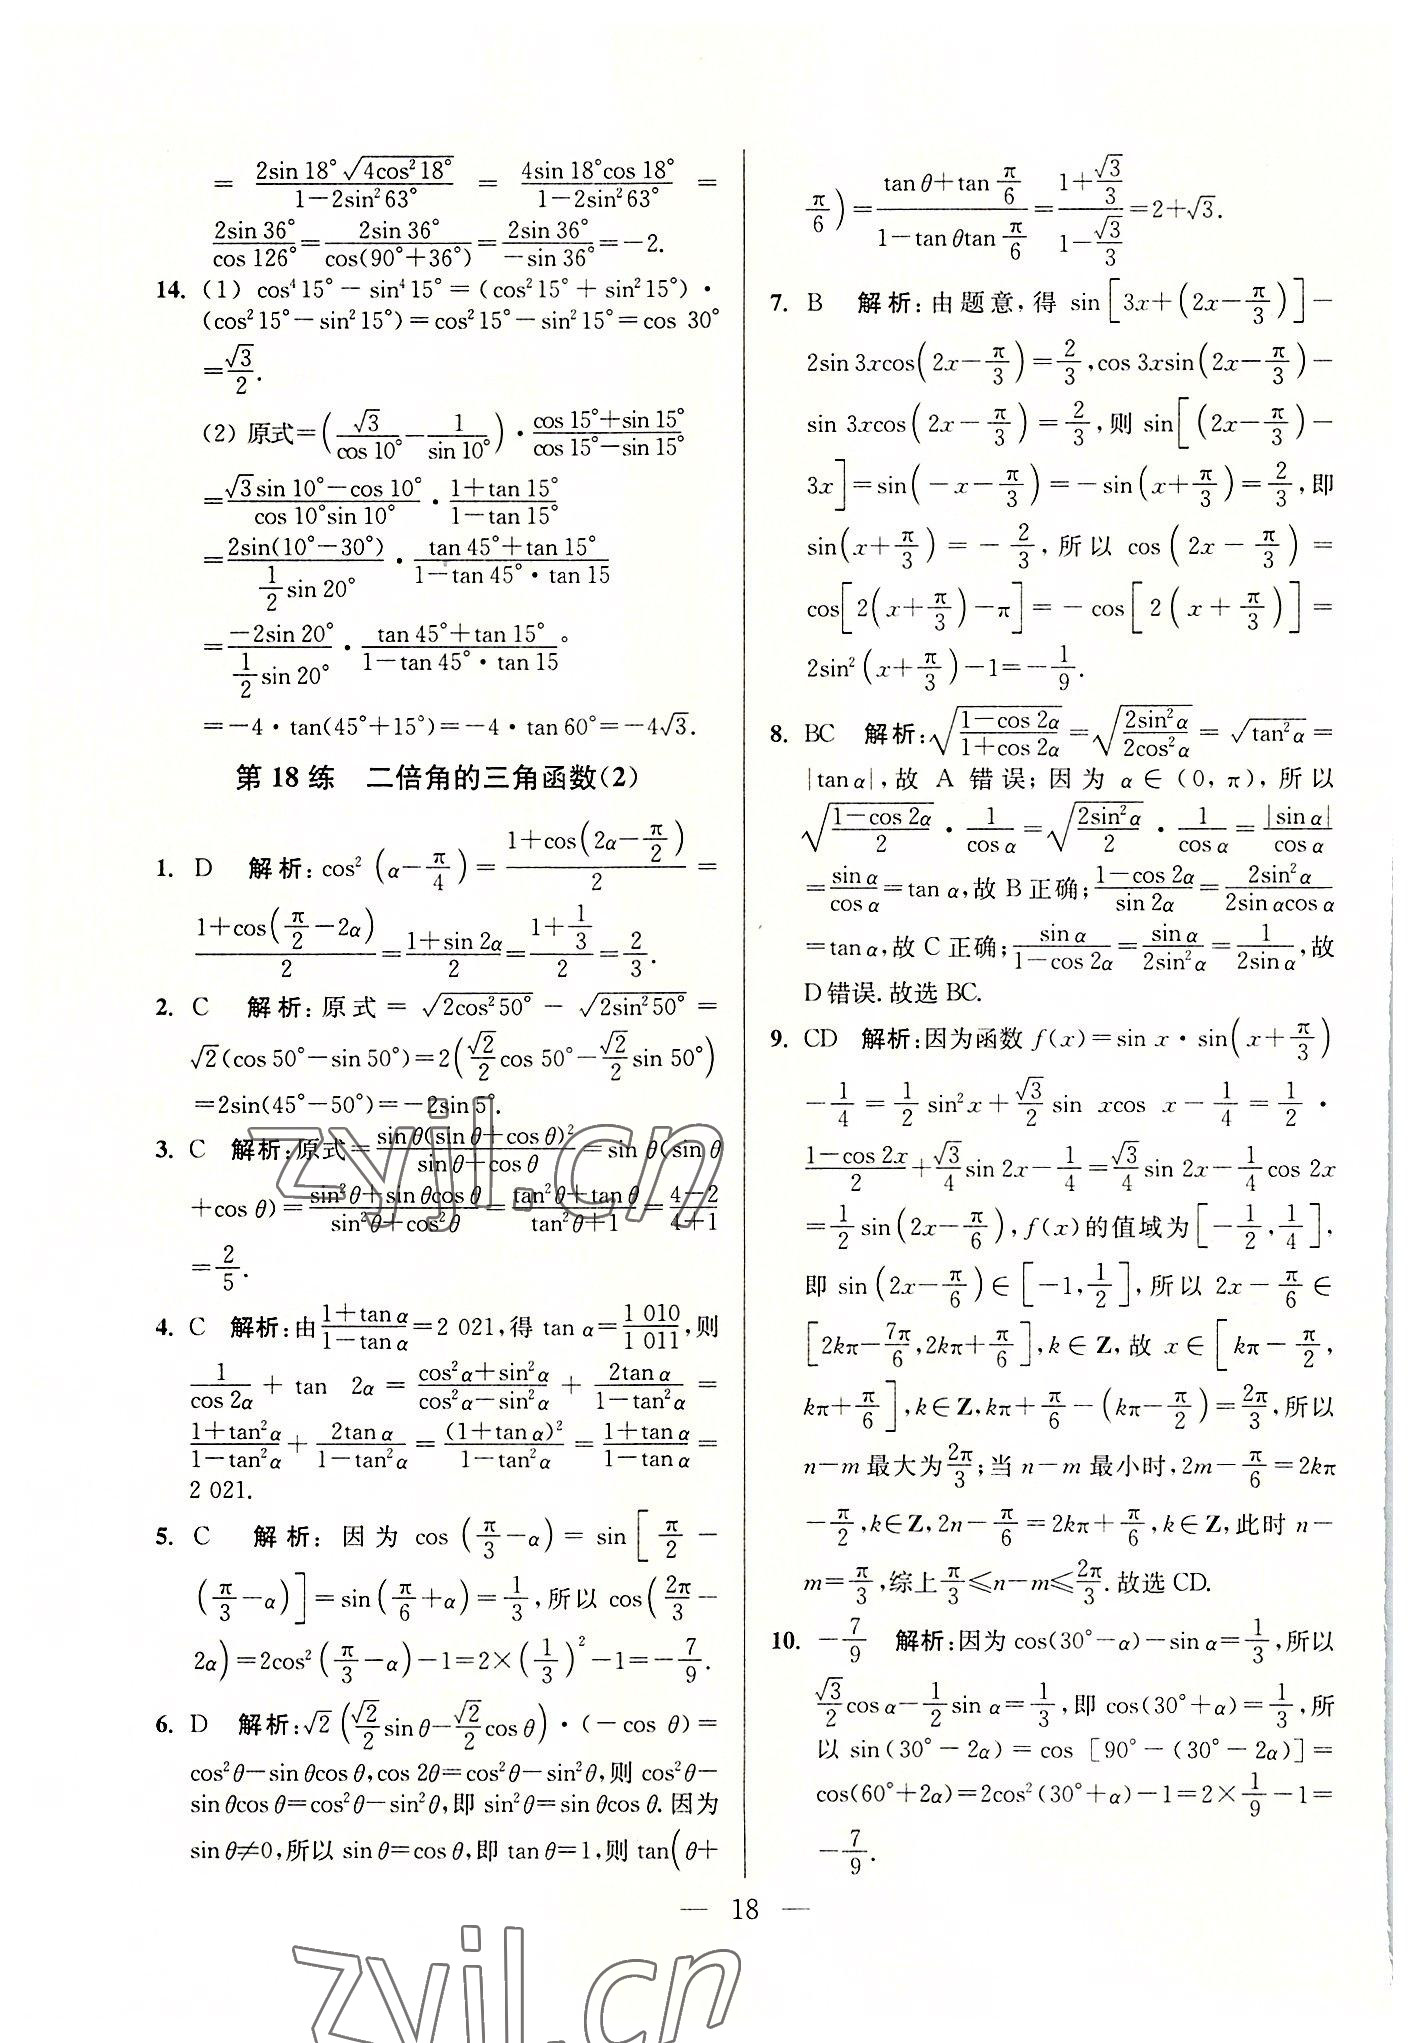 = 2sin 18°√(4cos²18°) / (1−2sin²63°) = 4sin 18°cos 18° / (1−2sin²63°) =
2sin 36°/cos 126° = 2sin 36°/cos(90°+36°) = 2sin 36°/−sin 36° = −2.
14. (1) cos⁴15°−sin⁴15°=(cos²15°+sin²15°)·
(cos²15°−sin²15°)=cos²15°−sin²15°=cos 30°
=√3/2.
(2) 原式=(√3/cos 10°−1/sin 10°)·(cos 15°+sin 15°)/(cos 15°−sin 15°)
=(√3sin 10°−cos 10°)/(cos 10°sin 10°)·(1+tan 15°)/(1−tan 15°)
=2sin(10°−30°)/(1/2 sin 20°)·(tan 45°+tan 15°)/(1−tan 45°·tan 15)
=−2sin 20°/(1/2 sin 20°)·(tan 45°+tan 15°)/(1−tan 45°·tan 15)。
=−4·tan(45°+15°)=−4·tan 60°=−4√3.
第 18 练 二倍角的三角函数(2)
1. D 解析:cos²(α−π/4)=(1+cos(2α−π/2))/2=
(1+cos(π/2−2α))/2=(1+sin 2α)/2=(1+1/3)/2=2/3.
2. C 解析:原式=√(2cos²50°)−√(2sin²50°)=
√2(cos 50°−sin 50°)=2(√2/2 cos 50°−√2/2 sin 50°)
=2sin(45°−50°)=−2sin 5°.
3. C 解析:原式=sin θ(sin θ+cos θ)²/(sin θ+cos θ)=sin θ(sin θ
+cos θ)=(sin²θ+sin θcos θ)/(sin²θ+cos²θ)=(tan²θ+tan θ)/(tan²θ+1)=(4−2)/(4+1)
=2/5.
4. C 解析:由(1+tan α)/(1−tan α)=2 021,得 tan α=1 010/1 011,则
1/cos 2α+tan 2α=(cos²α+sin²α)/(cos²α−sin²α)+2tan α/(1−tan²α)=
(1+tan²α)/(1−tan²α)+2tan α/(1−tan²α)=(1+tan α)²/(1−tan²α)=(1+tan α)/(1−tan α)=
2 021.
5. C 解析:因为 cos(π/3−α)=sin[π/2−
(π/3−α)]=sin(π/6+α)=1/3,所以 cos(2π/3−
2α)=2cos²(π/3−α)−1=2×(1/3)²−1=−7/9.
6. D 解析:√2(√2/2 sin θ−√2/2 cos θ)·(−cos θ)=
cos²θ−sin θcos θ,cos 2θ=cos²θ−sin²θ,则 cos²θ−
sin θcos θ=cos²θ−sin²θ,即 sin²θ=sin θcos θ.因为
sin θ≠0,所以 sin θ=cos θ,即 tan θ=1,则 tan(θ+
π/6)=(tan θ+tan π/6)/(1−tan θtan π/6)=(1+√3/3)/(1−√3/3)=2+√3.
7. B 解析:由题意,得 sin[3x+(2x−π/3)]−
2sin 3xcos(2x−π/3)=2/3,cos 3xsin(2x−π/3)−
sin 3xcos(2x−π/3)=2/3,则 sin[(2x−π/3)−
3x]=sin(−x−π/3)=−sin(x+π/3)=2/3,即
sin(x+π/3)=−2/3,所以 cos(2x−π/3)=
cos[2(x+π/3)−π]=−cos[2(x+π/3)]=
2sin²(x+π/3)−1=−1/9.
8. BC 解析:√((1−cos 2α)/(1+cos 2α))=√(2sin²α/2cos²α)=√(tan²α)=
|tan α|,故 A 错误;因为 α∈(0,π),所以
√((1−cos 2α)/2)·1/cos α=√(2sin²α/2)·1/cos α=|sin α|/cos α
=sin α/cos α=tan α,故 B 正确;(1−cos 2α)/sin 2α=2sin²α/(2sin αcos α)
=tan α,故 C 正确;sin α/(1−cos 2α)=sin α/2sin²α=1/(2sin α),故
D 错误.故选 BC.
9. CD 解析:因为函数 f(x)=sin x·sin(x+π/3)
−1/4=1/2 sin²x+√3/2 sin xcos x−1/4=1/2·
(1−cos 2x)/2+√3/4 sin 2x−1/4=√3/4 sin 2x−1/4 cos 2x
=1/2 sin(2x−π/6),f(x)的值域为[−1/2,1/4],
即 sin(2x−π/6)∈[−1,1/2],所以 2x−π/6∈
[2kπ−7π/6,2kπ+π/6],k∈Z,故 x∈[kπ−π/2,
kπ+π/6],k∈Z,kπ+π/6−(kπ−π/2)=2π/3,所以
n−m 最大为2π/3;当 n−m 最小时,2m−π/6=2kπ
−π/2,k∈Z,2n−π/6=2kπ+π/6,k∈Z,此时 n−
m=π/3,综上π/3≤n−m≤2π/3.故选 CD.
10. −7/9 解析:因为 cos(30°−α)−sin α=1/3,所以
√3/2 cos α−1/2 sin α=1/3,即 cos(30°+α)=1/3,所
以 sin(30°−2α)=cos [90°−(30°−2α)]=
cos(60°+2α)=2cos²(30°+α)−1=2×1/9−1=
−7/9.
— 18 —
zyjl.cn
zyjl.cn